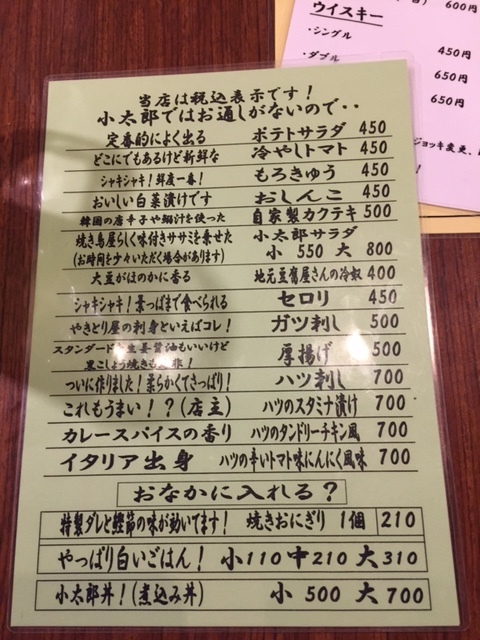 600円
ウイスキー
・シングル
450円
・ダブル
650円
650円
ジョッキ変更、
当店は税込表示です！
小太郎ではお通しがないので・・
定番的によく出る ポテトサラダ 450
どこにでもあるけど新鮮な 冷やしトマト 450
シャキシャキ！鮮度一番！ もろきゅう 450
おいしい白菜漬けです おしんこ 450
韓国の唐辛子や鰯汁を使った 自家製カクテキ 500
焼き鳥屋らしく味付きササミを乗せた 小太郎サラダ
(お時間を少々いただく場合があります) 小 550 大 800
大豆がほのかに香る 地元豆腐屋さんの冷奴 400
シャキシャキ！葉っぱまで食べられる セロリ 450
やきとり屋の刺身といえばコレ！ ガツ刺し 500
スタンダードな生姜醤油もいいけど
黒こしょう焼きも 厚揚げ 500
ついに作りました！柔らかくてさっぱり！ ハツ刺し 700
これもうまい！？(店主) ハツのスタミナ漬け 700
カレースパイスの香り ハツのタンドリーチキン風 700
イタリア出身 ハツの辛いトマト味にんにく風味 700
おなかに入れる？
特製ダレと鰹節の味が効いてます！ 焼きおにぎり 1個 210
やっぱり白いごはん！ 小110 中210 大310
小太郎丼！(煮込み丼) 小 500 大 700